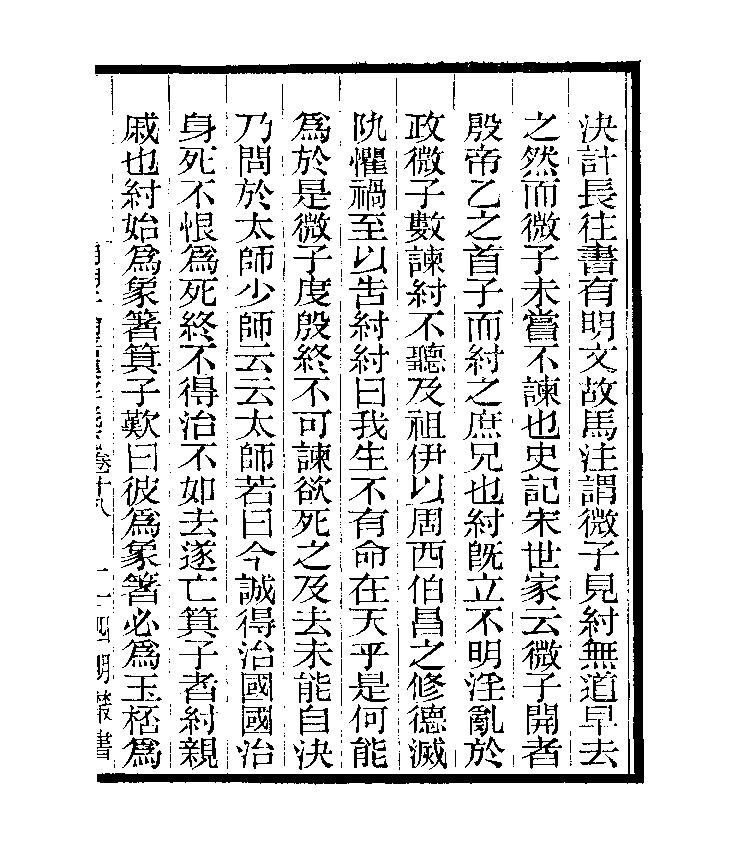 決計長往書有明文故馬注謂微子見紂無道早去
之然而微子未嘗不諫也史記宋世家云微子開者
殷帝乙之首子而紂之庶兄也紂旣立不明淫亂於
政微子數諫紂不聽及祖伊以周西伯昌之修德滅
𨸝懼禍至以告紂紂曰我生不有命在天乎是何能
爲於是微子度殷終不可諫欲死之及去未能自決
乃問於太師少師云云太師若曰今誠得治國國治
身死不恨爲死終不得治不如去遂亡箕子者紂親
戚也紂始爲象箸箕子歎曰彼爲象箸必爲玉桮爲
卷十八
四明叢書